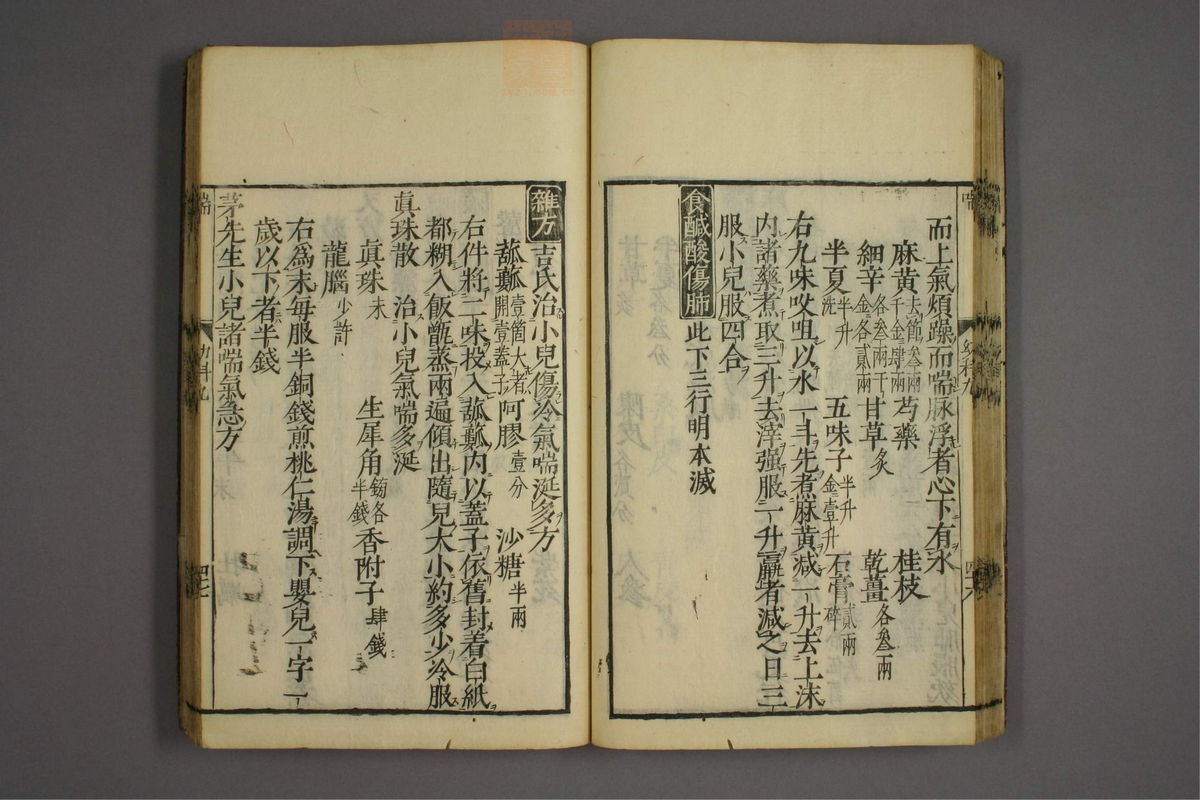 而上氣煩躁而喘脉浮者心下有水
麻黄去節叁兩千金肆兩 芍藥 桂枝
細辛各叁兩千金各貳兩 甘草炙 乾薑各叁兩
半夏半升洗 五味子半升金壹升 石膏貳兩碎
右九味㕮咀以水一斗先煮麻黄減一升去上沫
内諸藥煮取三升去滓强服一升羸者減之日三
服小兒服四合
食醎酸傷肺 此下三行明本滅
四十六
雜方 吉氏治小兒傷冷氣喘涎多方
菰蔕壹箇大者開壹蓋子 阿膠壹分 沙糖半兩
右件將二味投入菰蔕内以蓋子依舊封着白紙
都糊入飯甑蒸兩遍傾出隨兒大小約多少冷服
眞珠散 治小兒氣喘多涎
眞珠末 生犀角各半錢 香附子肆錢
龍腦少許
右爲末每服半銅錢煎桃仁湯調下嬰兒一字一
歲以下者半錢
茅先生小兒諸喘氣急方
喘 幼科九 四十七